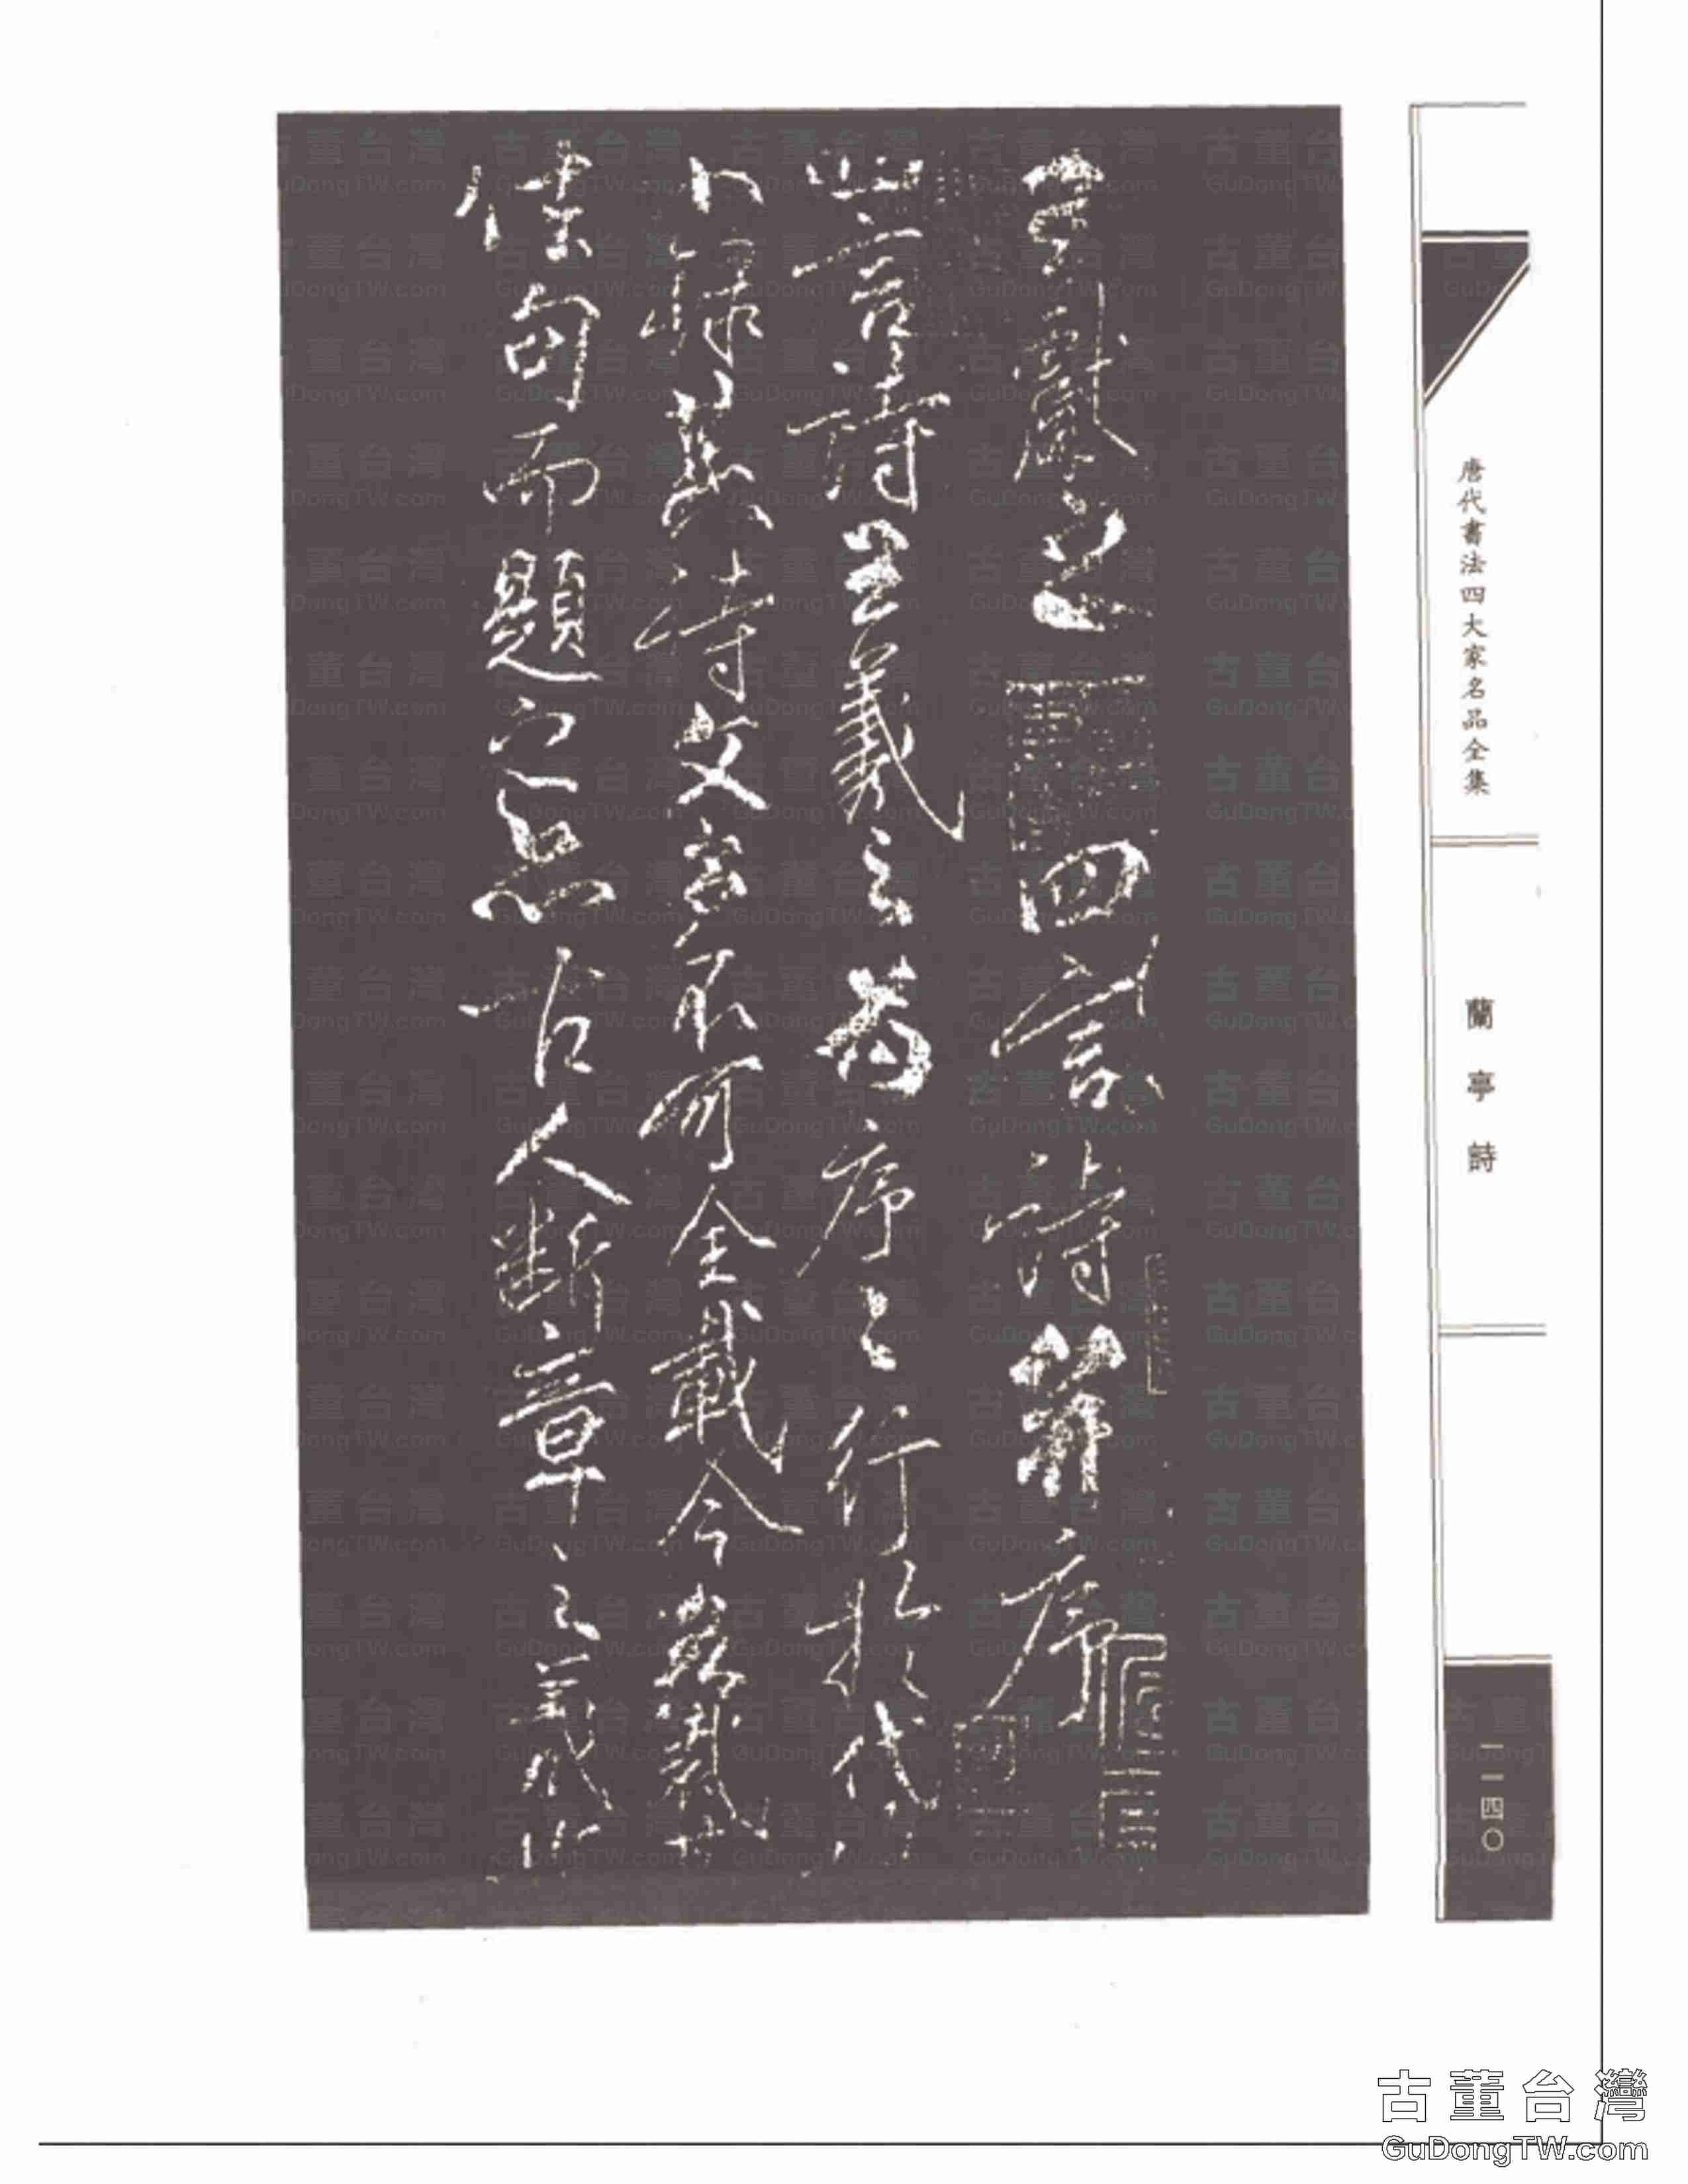 王獻之四言詩并序
四言詩王羲之為序序行於代
故不錄其詩文多不可全載今各裁其
佳句而題之亦古人斷章之義也
唐代書法四大家名品全集
蘭亭詩
一一四〇
古董台灣
GuDongTW.com